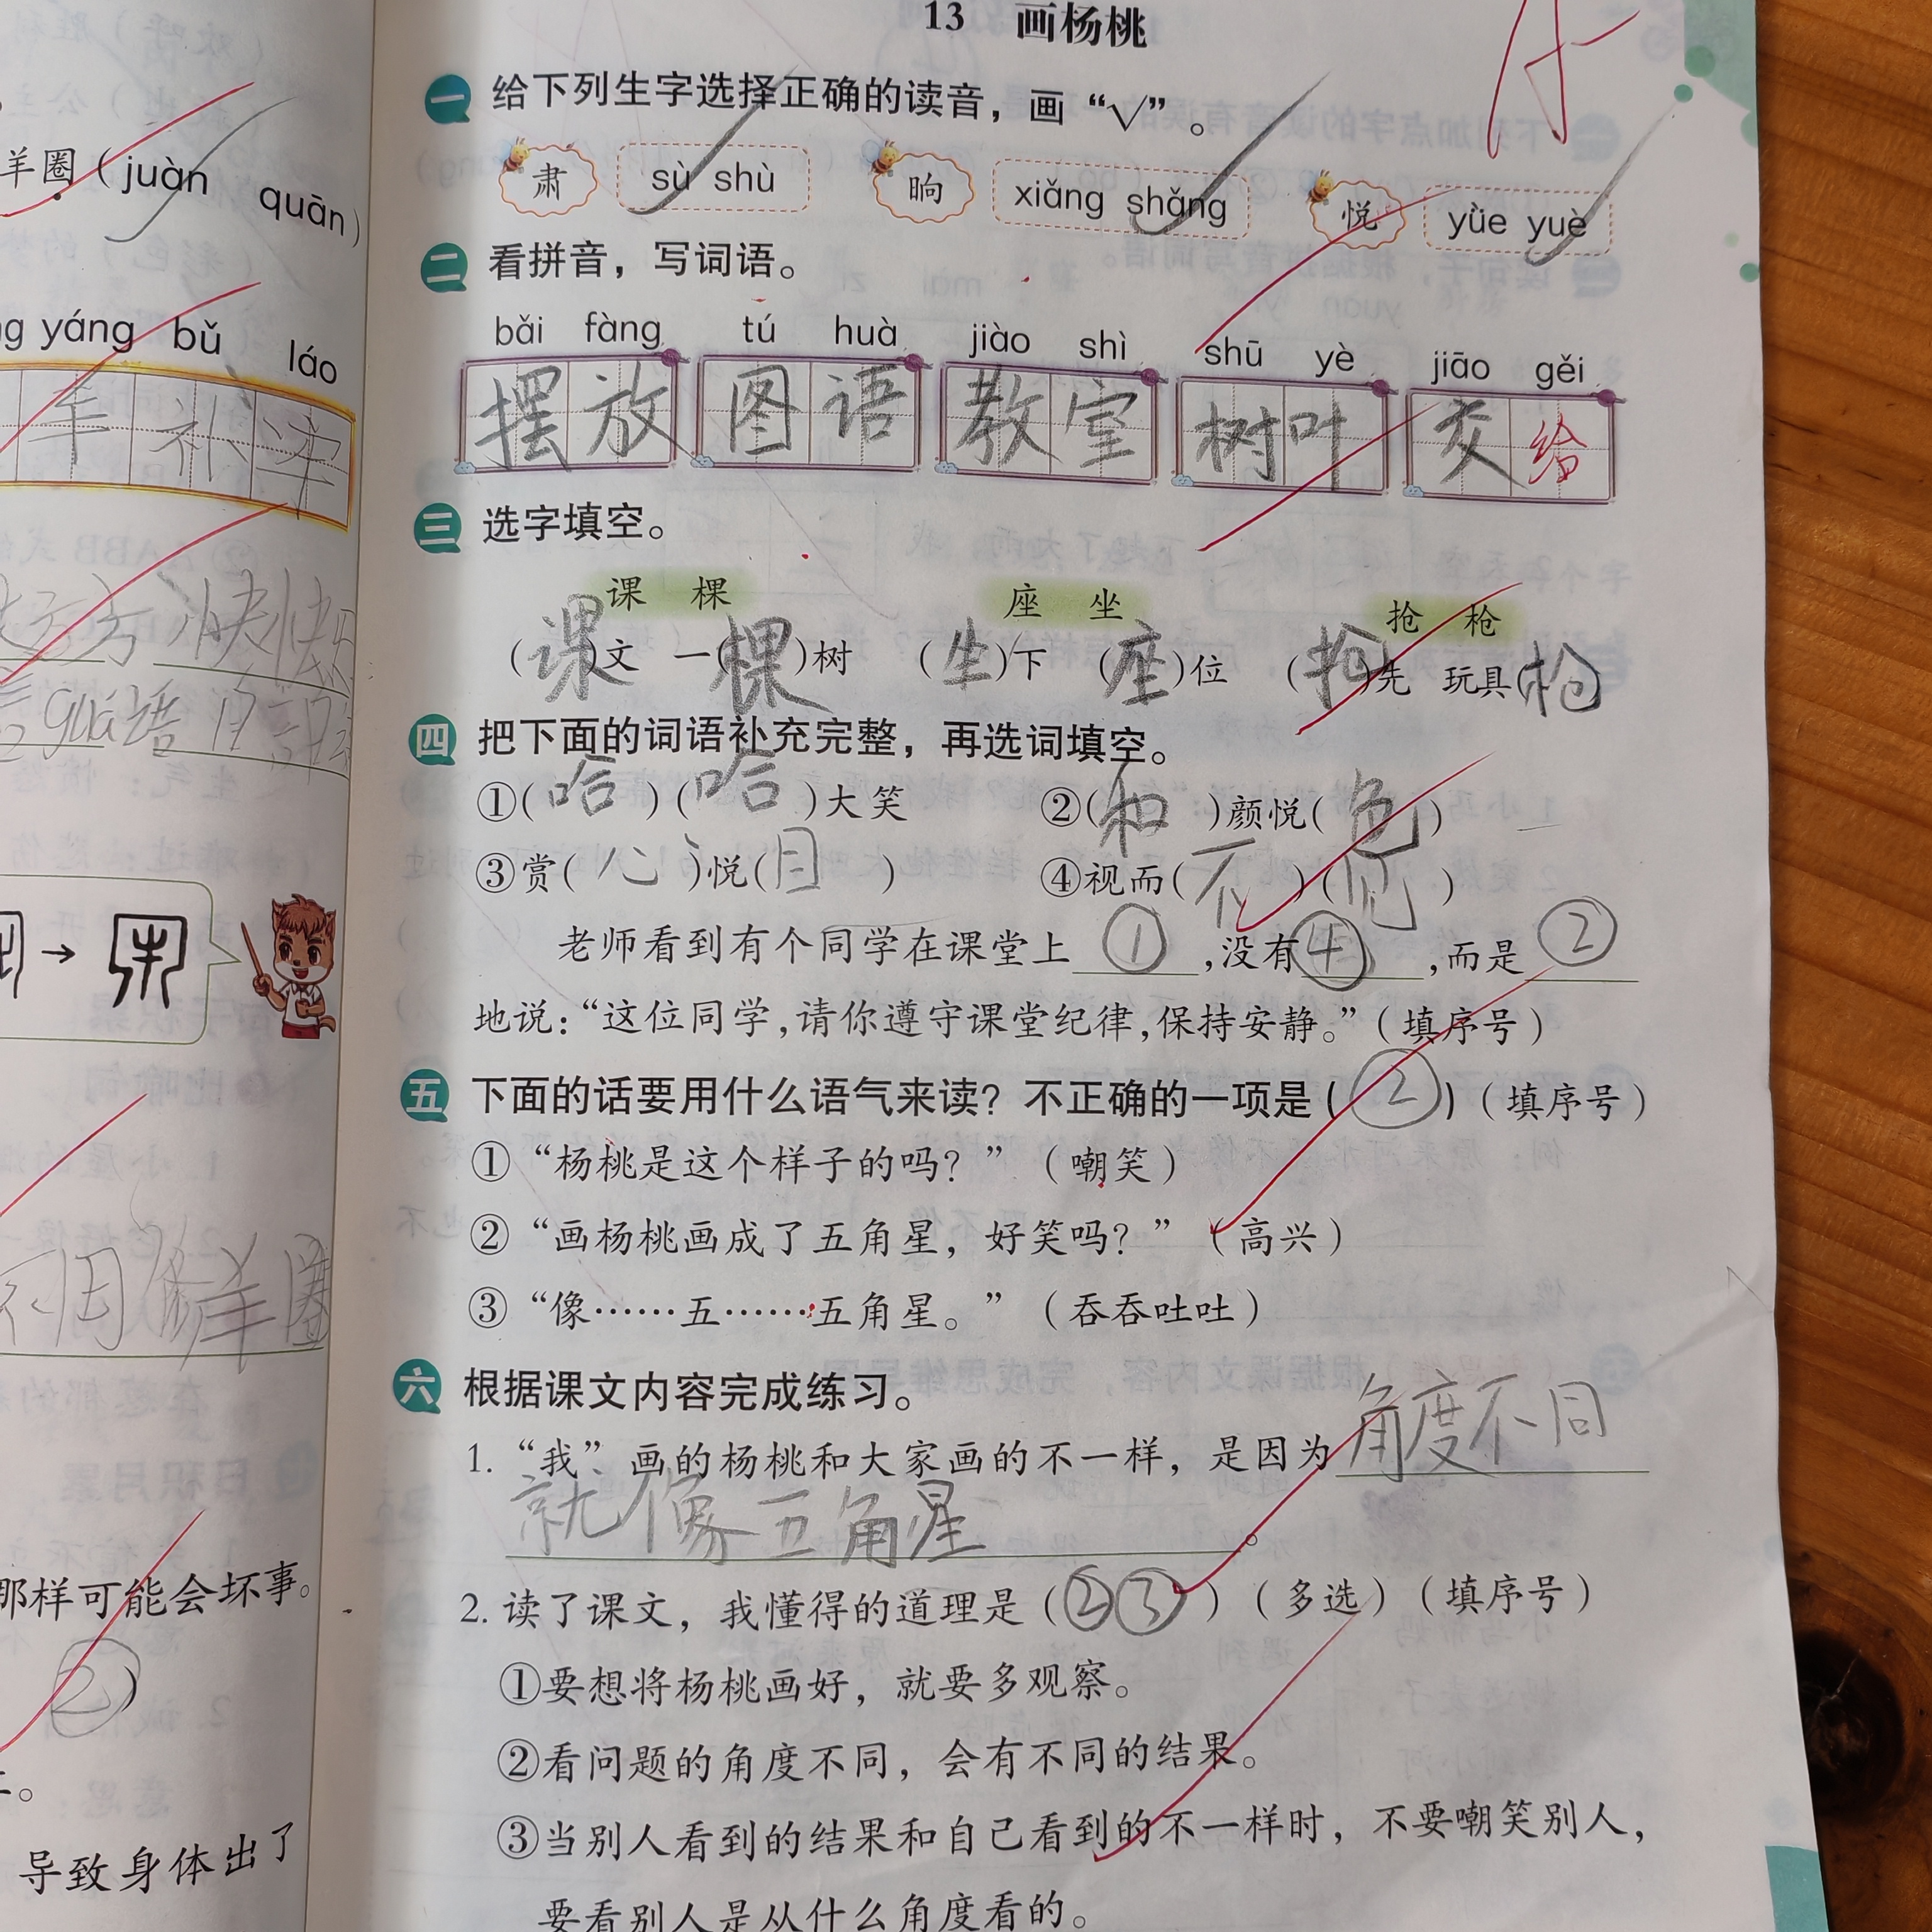 羊圈（juàn quān）
yáng bǔ láo
羊 补 牢
不因修羊圈
那样可能会坏事。
②）
导致身体出了
13 画杨桃
一 给下列生字选择正确的读音，画“√”。
肃 sù shù 晌 xiǎng shǎng 悦 yùe yuè
二 看拼音，写词语。
bǎi fàng tú huà jiào shì shū yè jiāo gěi
摆放 图语 教室 树叶 交给
三 选字填空。
课 棵 座 坐 抢 枪
（课）文 一（棵）树 （坐）下 （座）位 （抢）先 玩具（枪）
四 把下面的词语补充完整，再选词填空。
①（哈）（哈）大笑 ②（和）颜悦（色）
③赏（心）悦（目） ④视而（不）（见）
老师看到有个同学在课堂上①，没有④，而是②
地说：“这位同学，请你遵守课堂纪律，保持安静。”（填序号）
五 下面的话要用什么语气来读？不正确的一项是（②）（填序号）
①“杨桃是这个样子的吗？”（嘲笑）
②“画杨桃画成了五角星，好笑吗？”（高兴）
③“像……五……五角星。”（吞吞吐吐）
六 根据课文内容完成练习。
1. “我”画的杨桃和大家画的不一样，是因为角度不同
就像五角星。
2. 读了课文，我懂得的道理是（②③）（多选）（填序号）
①要想将杨桃画好，就要多观察。
②看问题的角度不同，会有不同的结果。
③当别人看到的结果和自己看到的不一样时，不要嘲笑别人，
要看别人是从什么角度看的。